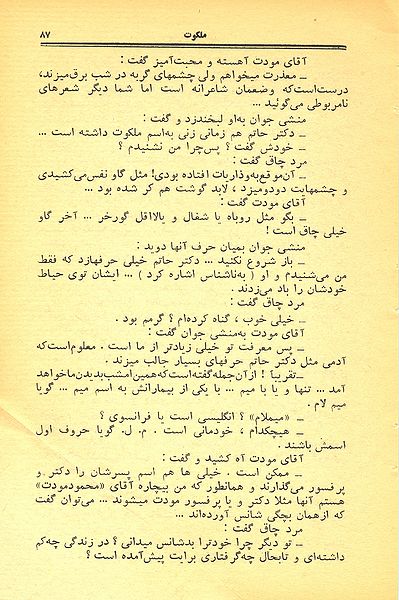 ملکوت
۸۷
آقای مودت آهسته و محبت‌آمیز گفت :
ـ معذرت میخواهم ولی چشمهای گربه در شب برق‌میزند،
درست‌است‌که وضعمان شاعرانه است اما شما دیگر شعرهای
نامربوطی می‌گوئید ...
منشی جوان به‌او لبخندزد و گفت :
ـ دکتر حاتم هم زمانی زنی به‌اسم ملکوت داشته است ...
ـ خودش گفت ؟ پس‌چرا من نشنیدم ؟
مرد چاق گفت :
ـ آن‌موقع‌به‌وذاریات افتاده بودی! مثل گاو نفس‌می‌کشیدی
و چشمهایت دودومیزد ، لابد گوشت هم کر شده بود ...
آقای مودت گفت :
ـ بگو مثل روباه یا شغال و یااقل گورخر ... آخر گاو
خیلی چاق است !
منشی جوان بمیان حرف آنها دوید :
ـ باز شروع نکنید ... دکتر حاتم خیلی حرفهازد که فقط
من می‌شنیدم و او ( به‌ناشناس اشاره کرد ) ... ایشان توی حیاط
خودشان را باد می‌زدند .
مرد چاق گفت :
ـ خیلی خوب ، گناه کرده‌ام ؟ گرمم بود .
آقای مودت به‌منشی جوان گفت :
ـ پس معرفت تو خیلی زیادتر از ما است . معلوم‌است‌که
آدمی مثل دکتر حاتم حرفهای بسیار جالب میزند .
ـ تقریباً ! از آن‌جمله‌گفته‌است‌که‌همین‌امشب‌بدیدن‌ماخواهد
آمد ... تنها و یا با میم ... با یکی از بیمارانش به اسم میم ... گویا
میم لام .
ـ «میملام» ؟ انگلیسی است یا فرانسوی ؟
ـ هیچکدام ، خودمانی است . م . ل . گویا حروف اول
اسمش باشند .
آقای مودت آه کشید و گفت :
ـ ممکن است . خیلی ها هم اسم پسرشان را دکتر و
پرفسور می‌گذارند و همانطور که من بیچاره آقای «محمودمودت»
هستم آنها مثلا دکتر و یا پرفسور مودت میشوند ... می‌توان گفت
که ازهمان بچگی شانس آورده‌اند ...
مرد چاق گفت :
ـ تو دیگر چرا خودترا بدشانس میدانی ؟ در زندگی چه‌کم
داشته‌ای و تابحال چه‌گرفتاری برایت پیش‌آمده است ؟